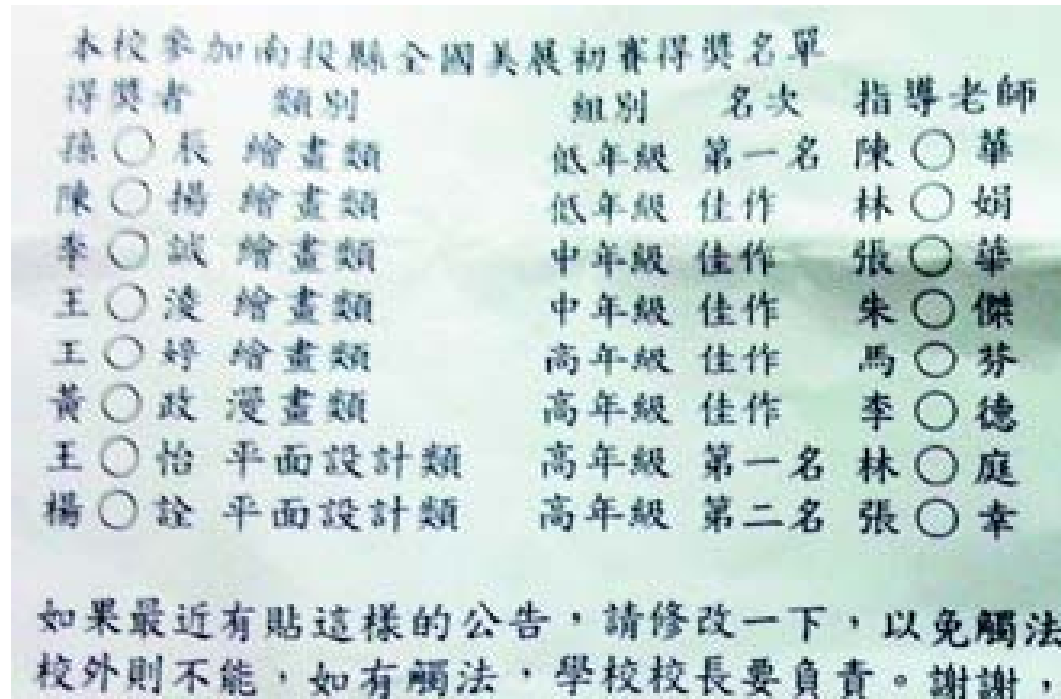 本校參加南投縣全國美展初賽得獎名單
得獎者 類別 組別 名次 指導老師
孫○辰 繪畫類 低年級 第一名 陳○華
陳○揚 繪畫類 低年級 佳作 林○娟
李○誠 繪畫類 中年級 佳作 張○華
王○淩 繪畫類 中年級 佳作 朱○傑
王○婷 繪畫類 高年級 佳作 馬○芬
黃○政 漫畫類 高年級 佳作 李○德
王○怡 平面設計類 高年級 第一名 林○庭
楊○詮 平面設計類 高年級 第二名 張○幸
如果最近有貼這樣的公告，請修改一下，以免觸法
校外則不能，如有觸法，學校校長要負責。謝謝，